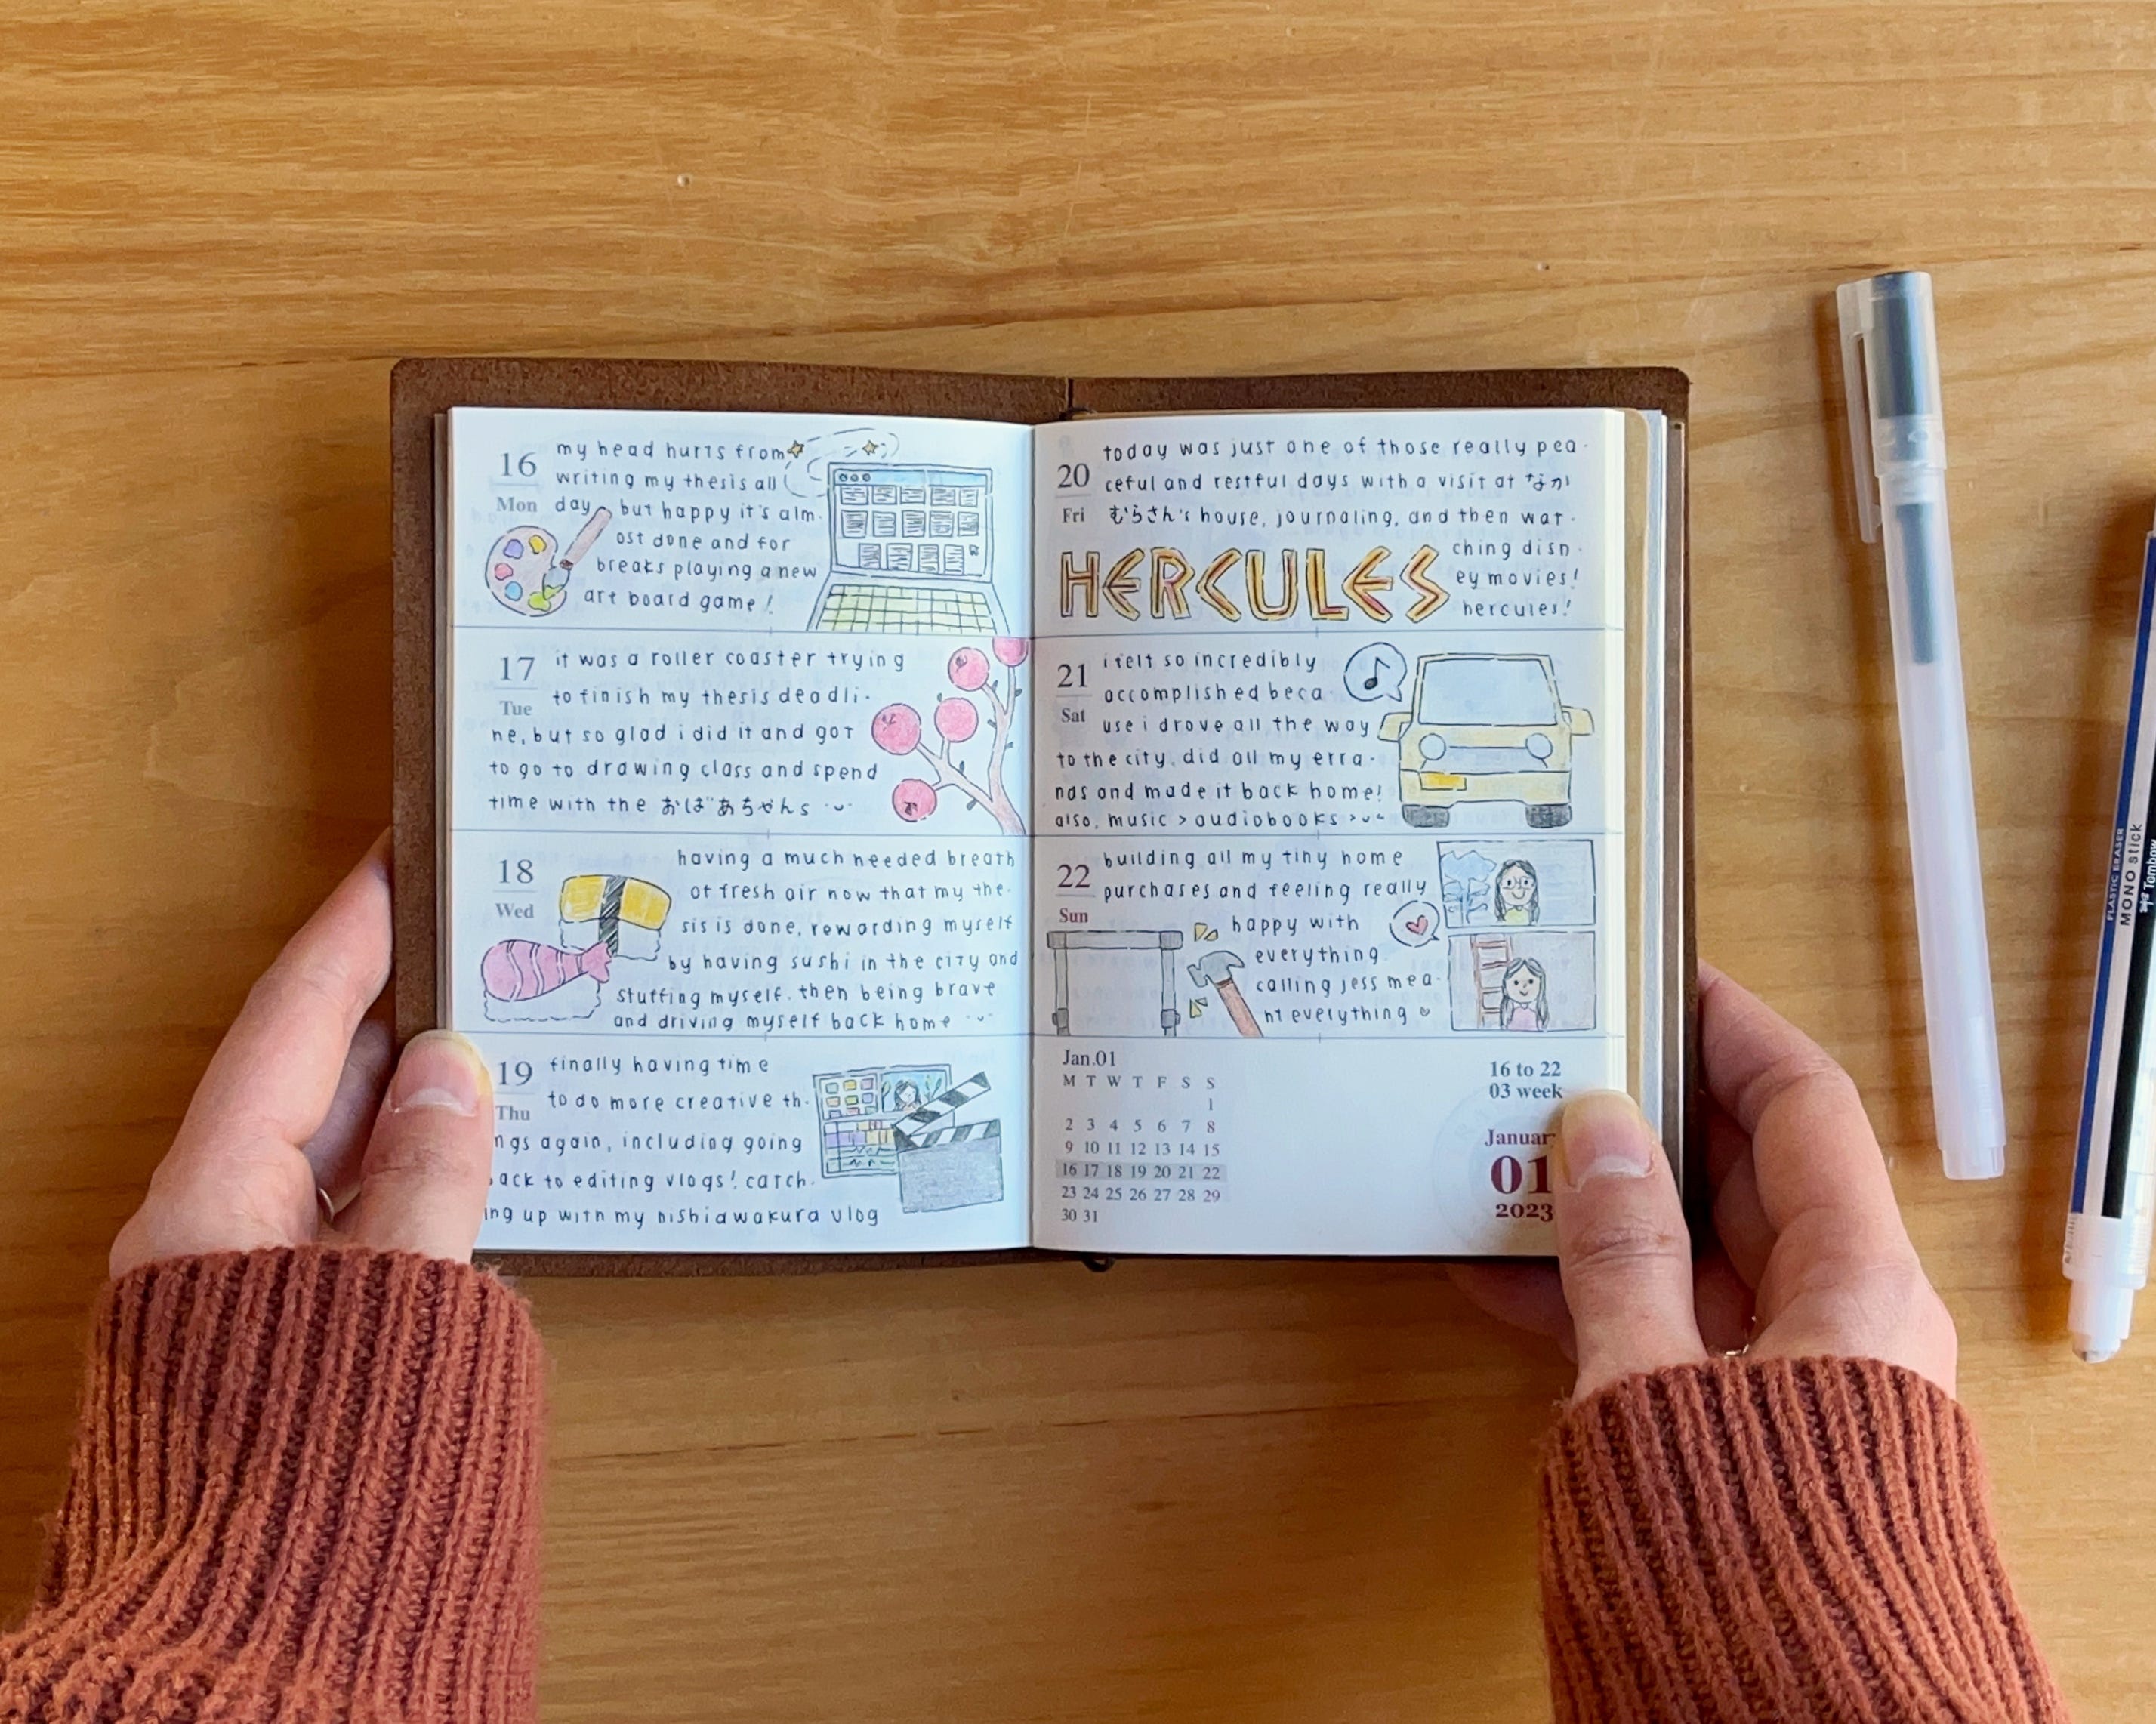 16
Mon
my head hurts from
writing my thesis all
day, but happy it's alm-
ost done and for
breaks playing a new
art board game!
17
Tue
it was a roller coaster trying
to finish my thesis deadli-
ne, but so glad i did it and got
to go to drawing class and spend
time with the おばあちゃんs
18
Wed
having a much needed breath
of fresh air now that my the-
sis is done, rewarding myself
by having sushi in the city and
stuffing myself. then being brave
and driving myself back home
19
Thu
finally having time
to do more creative th-
ngs again, including going
ack to editing vlogs! catch-
ing up with my nishiawakura vlog
20
Fri
today was just one of those really pea-
ceful and restful days with a visit at なか
むらさん's house, journaling, and then wat-
ching disn-
ey movies!
hercules!
HERCULES
21
Sat
i felt so incredibly
accomplished beca-
use i drove all the way
to the city, did all my erra-
nds and made it back home!
also, music > audiobooks
22
Sun
building all my tiny home
purchases and feeling really
happy with
everything.
calling jess mea-
nt everything
Jan.01
M T W T F S S
1
2 3 4 5 6 7 8
9 10 11 12 13 14 15
16 17 18 19 20 21 22
23 24 25 26 27 28 29
30 31
16 to 22
03 week
Januar
01
2023
PLASTIC ERASER
MONO stick
Tombow